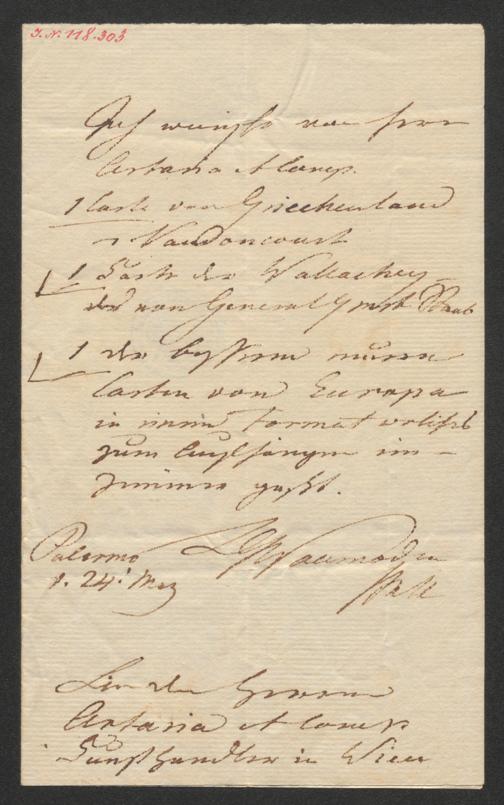 J.N. 118.303
Ich wünsche von Herrn
Artaria et Comp.
1 Carte von Griechenland
v Vaudoncourt
1 Carte der Wallachey
von General Staab
1 der besseren
Carten von Europa
in Format welches
zum Aufhängen im
Zimmer
Palermo
24. Wallmoden
An die Herren
Artaria et Comp
Kunsthändler in Wien